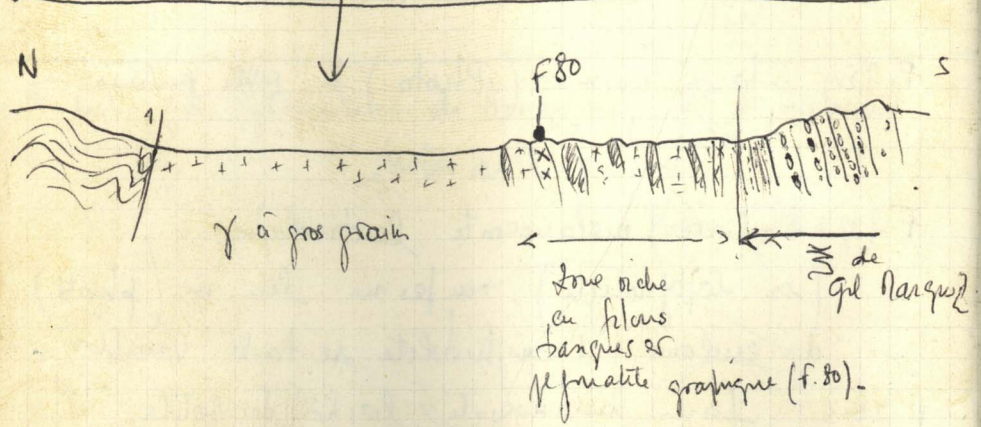 N
F 80
S
1
γ à gros grain
zone riche
en filons
basiques et
pegmatite graphique (F. 80).
de
Gil Marquez